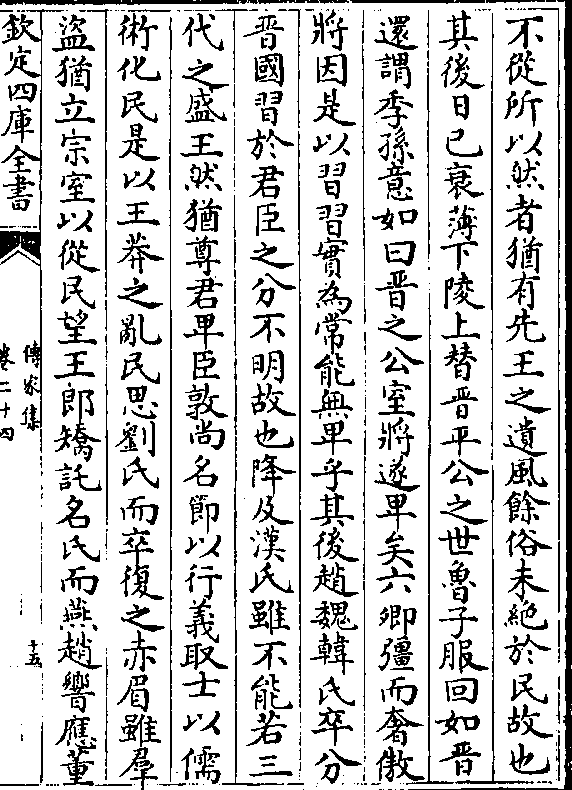 不從所以然者猶有先王之遺風餘俗未絶於民故也
其後日已衰薄下陵上替晋平公之世魯子服回如晋
還謂季孫意如曰晋之公室將遂卑矣六卿彊而奢傲
將因是以習習實為常能無卑乎其後趙魏韓氏卒分
晋國習於君臣之分不明故也降及漢氏雖不能若三
代之盛王然猶尊君卑臣敦尚名節以行義取士以儒
術化民是以王莽之亂民思劉氏而卒復之赤眉雖羣
盜猶立宗室以從民望王郎矯託名氏而燕趙響應董
欽定四庫全書
傳家集
卷二十四
十五